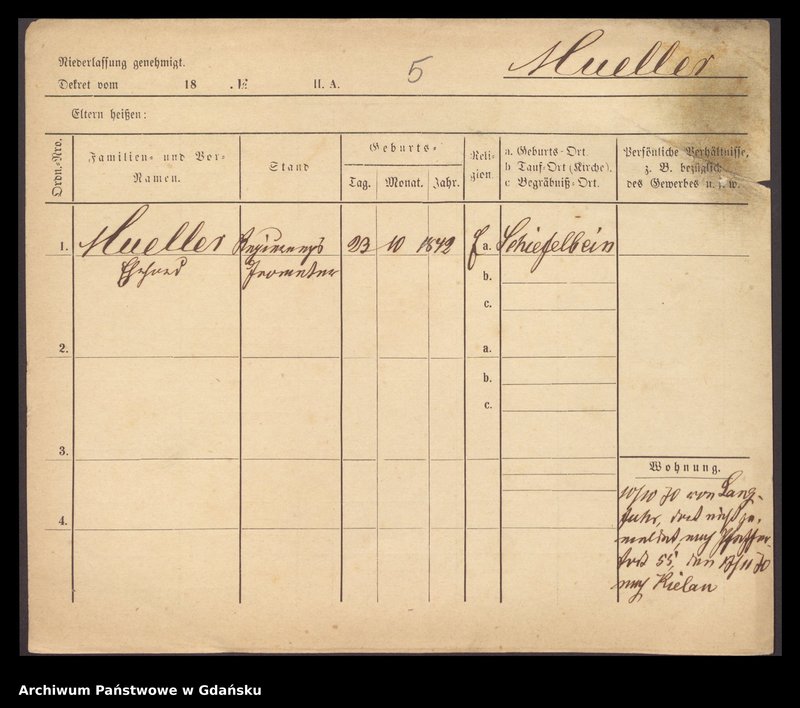 Niederlassung genehmigt.
Dekret vom 18 . II. A.
5
Mueller
Eltern heißen:
Ordn.-Nro.
Familien- und Vor-
Namen.
Stand
Geburts-
Tag. Monat. Jahr.
Reli-
gion
a. Geburts-Ort
b Tauf-Ort (Kirche).
c Begräbniß-Ort.
Persönliche Verhältnisse,
z. B. bezüglich
des Gewerbes u. s. w.
1. Mueller Regierungs 23 10 1842 a. Schiefelbein
Geometer
b.
c.
2. a.
b.
c.
3.
4.
Wohnung.
10/10 70 von Lang-
fuhr, dort nicht ge-
meldet, nach Pfeffer
stadt 55, den 13/11 70
nach Kielau
Archiwum Państwowe w Gdańsku